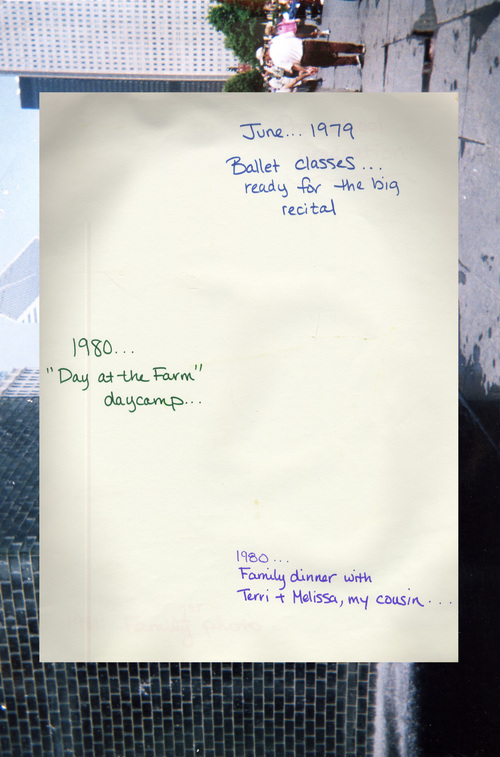 June... 1979
Ballet classes...
ready for the big
recital
1980...
"Day at the Farm"
daycamp...
1980...
Family dinner with
Terri + Melissa, my cousin...